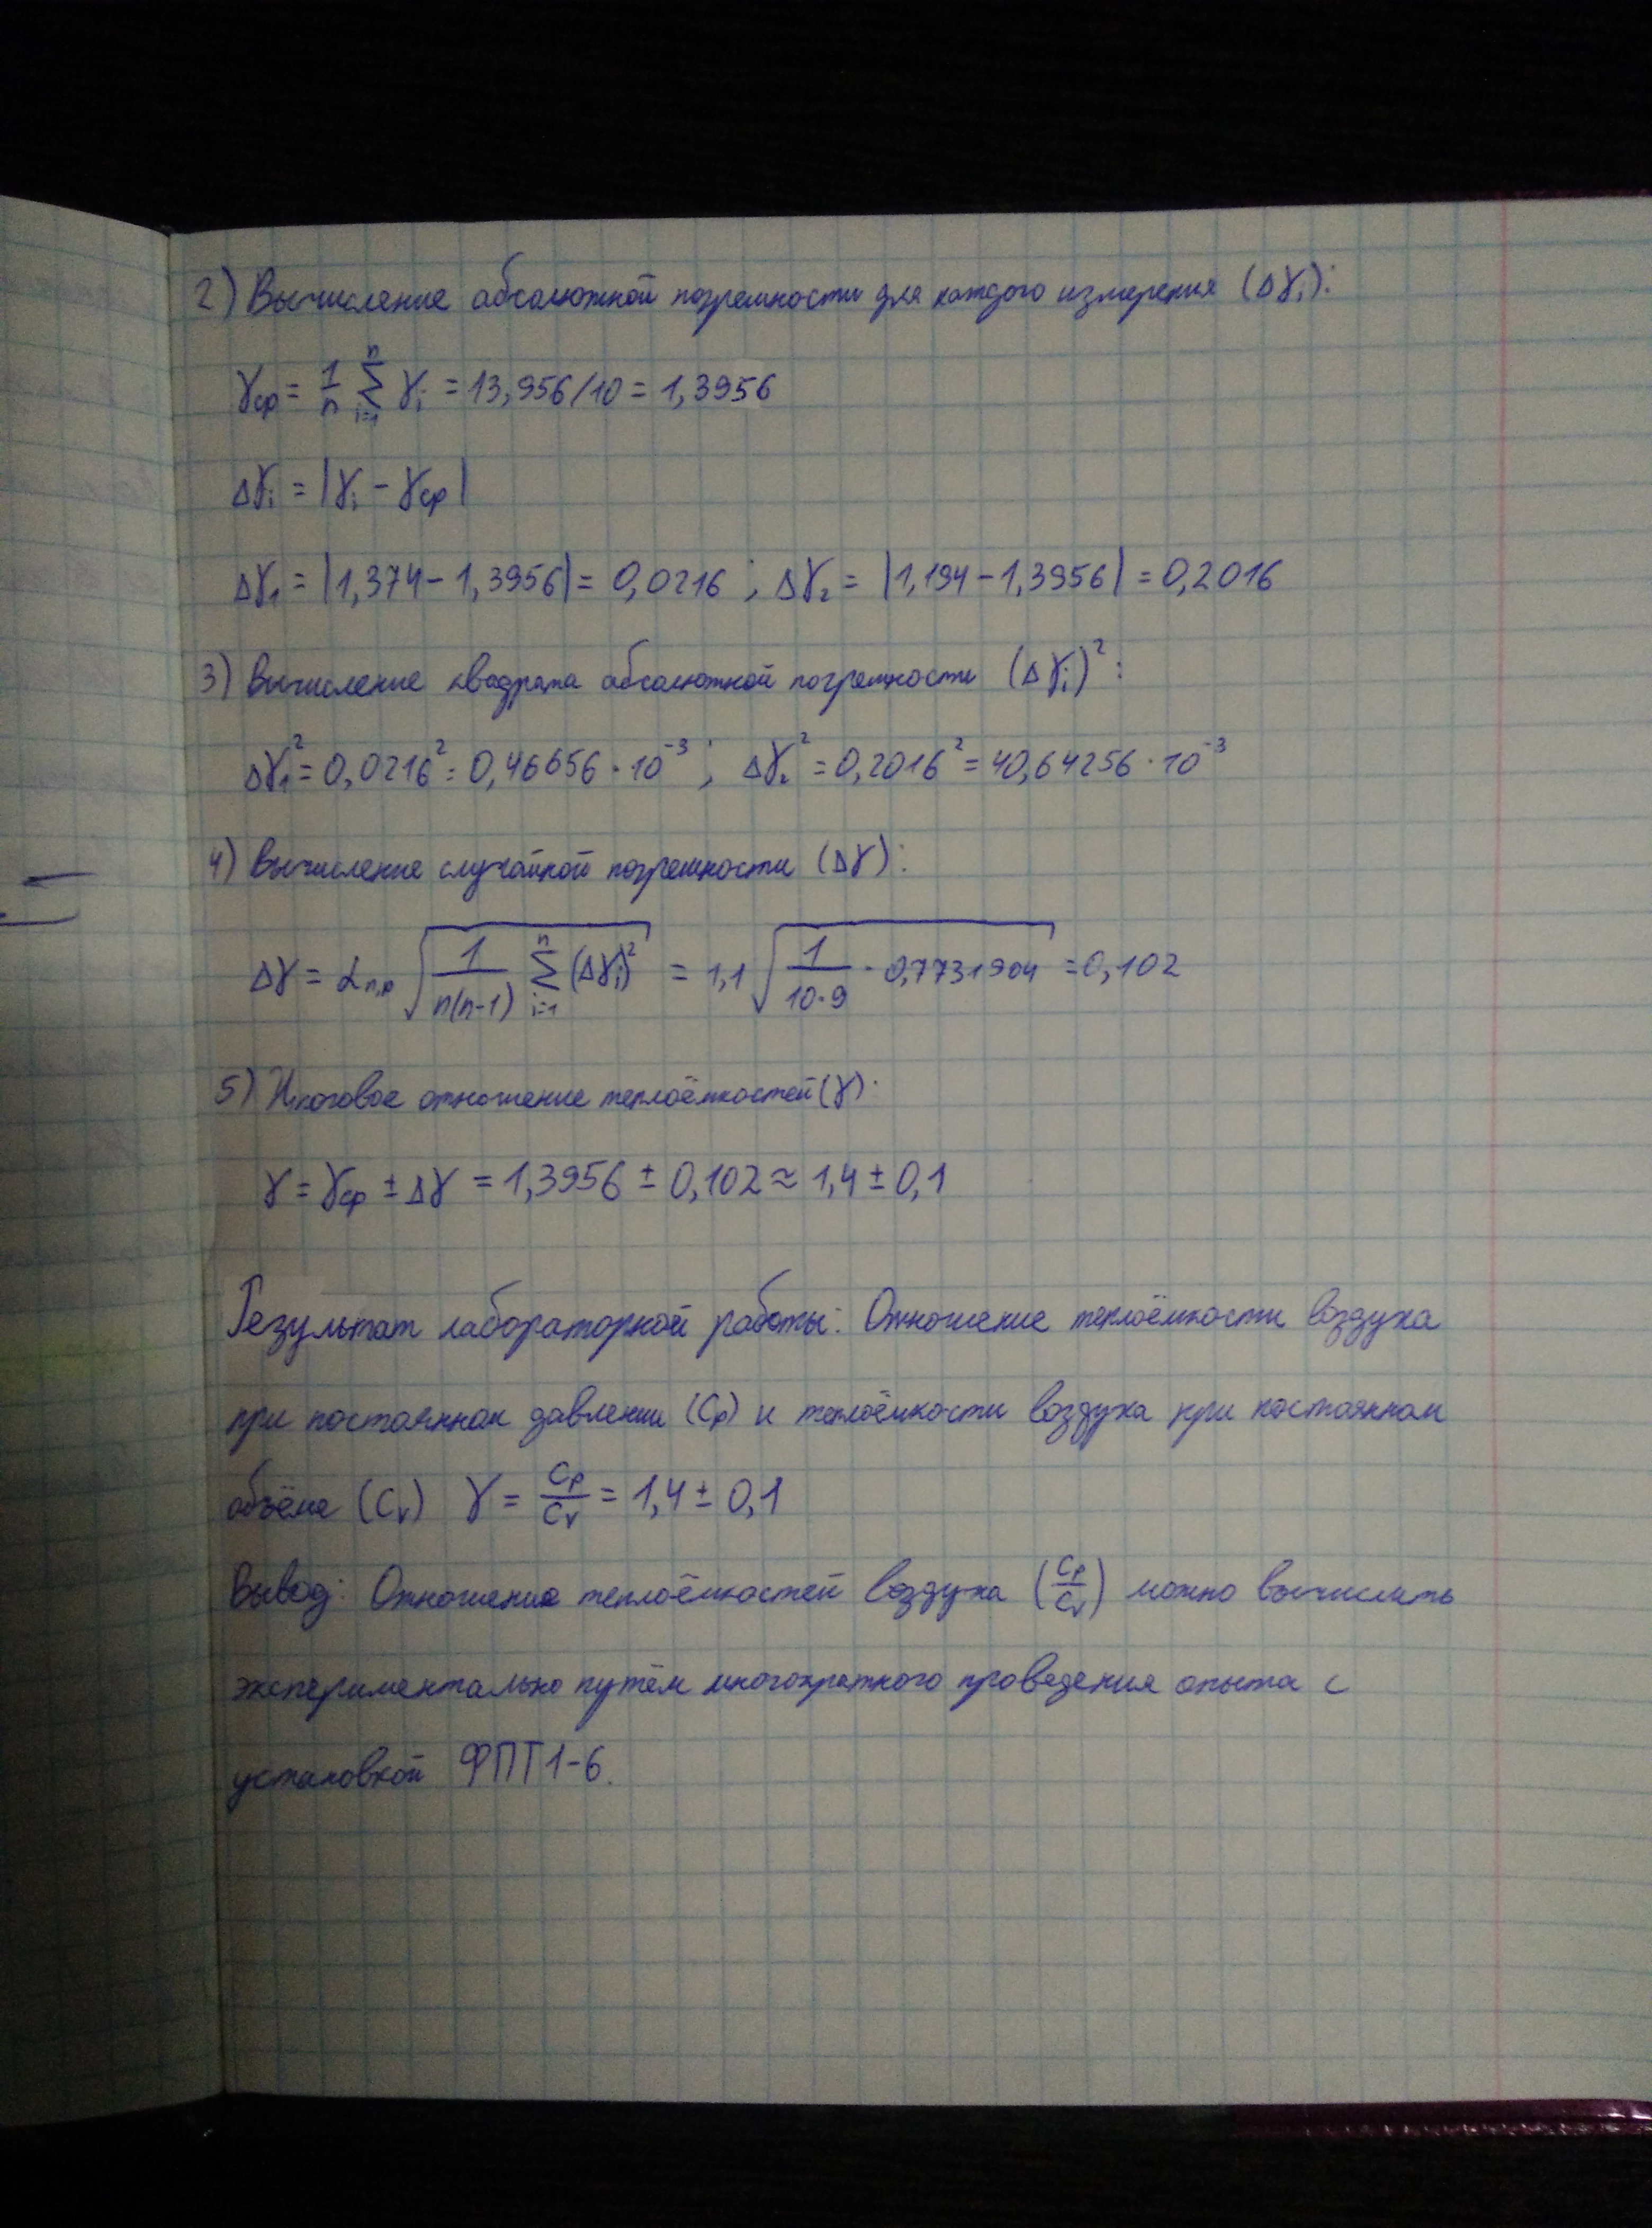 2) Вычисление абсолютной погрешности для каждого измерения (Δγᵢ):
γср = 1/n Σⁿᵢ₌₁ γᵢ = 13,956/10 = 1,3956
Δγᵢ = |γᵢ - γср|
Δγ₁ = |1,374 - 1,3956| = 0,0216 ; Δγ₂ = |1,194 - 1,3956| = 0,2016
3) Вычисление квадрата абсолютной погрешности (Δγᵢ)²:
Δγ₁² = 0,0216² = 0,46656 · 10⁻³ ; Δγ₂² = 0,2016² = 40,64256 · 10⁻³
4) Вычисление случайной погрешности (Δγ):
Δγ = αn,p √(1/(n(n-1)) Σⁿᵢ₌₁ (Δγᵢ)²) = 1,1 √(1/(10·9) · 0,7731904) = 0,102
5) Итоговое отношение теплоёмкостей (γ):
γ = γср ± Δγ = 1,3956 ± 0,102 ≈ 1,4 ± 0,1
Результат лабораторной работы: Отношение теплоёмкости воздуха
при постоянном давлении (Cp) и теплоёмкости воздуха при постоянном
объёме (Cv) γ = Cp/Cv = 1,4 ± 0,1
Вывод: Отношение теплоёмкостей воздуха (Cp/Cv) можно вычислить
экспериментально путём многократного проведения опыта с
установкой ФПТ1-6.